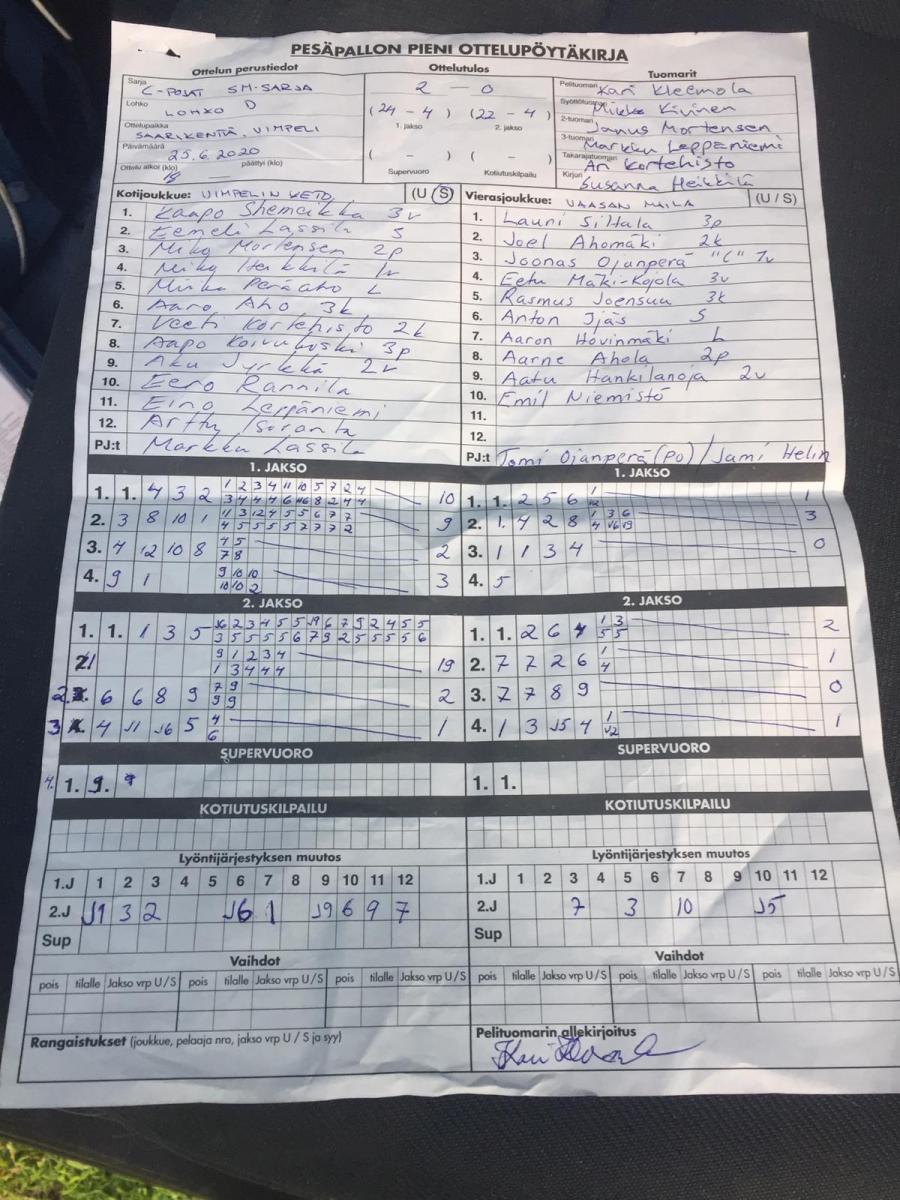 PESÄPALLON PIENI OTTELUPÖYTÄKIRJA
Ottelun perustiedot Ottelutulos Tuomarit
Sarja C-POJAT SM-SARJA
Lohko LOHKO D
Ottelupaikka SAARIKENTÄ, VIMPELI
Päivämäärä 25.6.2020
Ottelu alkoi (klo) 18 päättyi (klo) —
2 — 0
(24 - 4) (22 - 4)
1. jakso 2. jakso
( - ) ( - )
Supervuoro Kotiutuskilpailu
Pelituomari Kari Kleemola
Syöttötuomari Mikko Kivinen
2-tuomari Janus Mortensen
3-tuomari Markku Leppäniemi
Takarajatuomari Ari Kortehisto
Kirjuri Susanna Heikkilä
Kotijoukkue: VIMPELIN VETO (U / S)
1. Kaapo Shemeikka 3v
2. Eemeli Lassila S
3. Miko Mortensen 2p
4. Miko Heikkilä 1v
5. Peräaho L
6. Aaro Aho 3k
7. Veeti Kortehisto 2k
8. Aapo Koivukoski 3p
9. Aku Jyrkkä 2v
10. Eero Rannila
11. Eino Leppäniemi
12. Arttu Isoranta
PJ:t Markku Lassila
Vierasjoukkue: VAASAN MAILA (U / S)
1. Lauri Siltala 3p
2. Joel Ahomäki 2k
3. Joonas Ojanperä "C" 1v
4. Eetu Mäki-Kojola 3v
5. Rasmus Joensuu 3k
6. Anton Ijäs S
7. Aaron Hovinmäki L
8. Aarne Ahola 2p
9. Aatu Hankilanoja 2v
10. Emil Niemistö
11.
12.
PJ:t Tomi Ojanperä (PO) / Jami Helin
1. JAKSO
1. 1. 4 3 2 1 2 3 4 11 10 5 7 2 4 10
2. 3 8 10 1 11 3 12 4 5 5 6 7 7 9
4 5 5 5 5 5 7 7 7 2
3. 4 12 10 8 4 5 2
7 8
4. 9 1 9 10 10 3
10 10 2
1. JAKSO
1. 1. 2 5 6 1 1
12
2. 1 4 2 8 1 3 6 3
4 J6 J9
3. 1 1 3 4 0
4. 5
2. JAKSO
1. 1. 1 3 5 J6 2 3 4 5 5 J9 6 7 9 2 4 5 5
3 5 5 5 5 6 7 9 2 5 5 5 5 6
9 1 2 3 4 19
1 3 4 4 4
6 6 8 9 7 9 2
9 9
4 J11 J6 5 4 1
6
2. JAKSO
1. 1. 2 6 4 1 3 2
5 5
2. 7 7 2 6 1 1
4
3. 7 7 8 9 0
4. 1 3 J5 4 1 1
J2
SUPERVUORO
1. 9.
SUPERVUORO
1. 1.
KOTIUTUSKILPAILU
KOTIUTUSKILPAILU
Lyöntijärjestyksen muutos
1.J 1 2 3 4 5 6 7 8 9 10 11 12
2.J J1 3 2 J6 1 J9 6 9 7
Sup
Lyöntijärjestyksen muutos
1.J 1 2 3 4 5 6 7 8 9 10 11 12
2.J 7 3 10 J5
Sup
Vaihdot
pois tilalle Jakso vrp U/S pois tilalle Jakso vrp U/S pois tilalle Jakso vrp U/S
Vaihdot
pois tilalle Jakso vrp U/S pois tilalle Jakso vrp U/S pois tilalle Jakso vrp U/S
Rangaistukset (joukkue, pelaaja nro, jakso vrp U / S ja syy)
Pelituomarin allekirjoitus